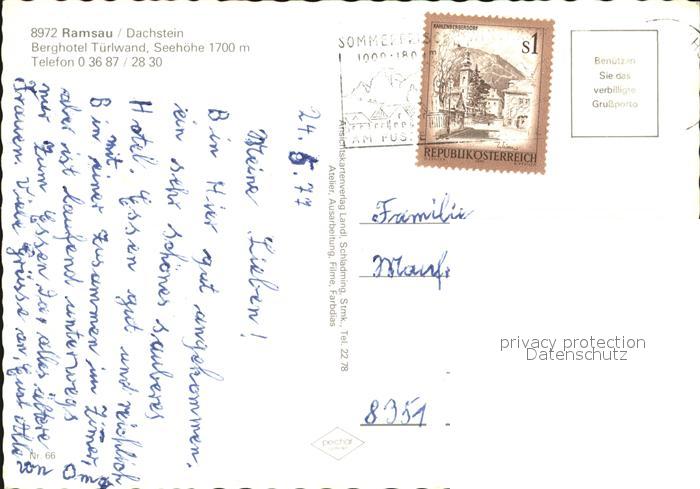 8972 Ramsau / Dachstein
Berghotel Türlwand, Seehöhe 1700 m
Telefon 0 36 87 / 28 30
24. 5. 77
Meine Lieben!
Bin Hier gut angekommen.
ein sehr schönes sauberes
Hotel. Essen gut und reichlich
Bin mit einer zusammen im Zimer,
aber ist laufend unterwegs
nur zum Essen da, alles ältere
Frauen Viele Grüsse an Euch Alle
Nr. 66
Ansichtskartenverlag Landl, Schladming, Stmk., Tel. 22 78
Atelier, Ausarbeitung, Filme, Farbdias
SOMMERFRISCHE
1000-180
AM
KAHLENBERGERDORF
s1
REPUBLIK ÖSTERREICH
Benützen
Sie das
verbilligte
Grußporto
Familie
8351
privacy protection
Datenschutz